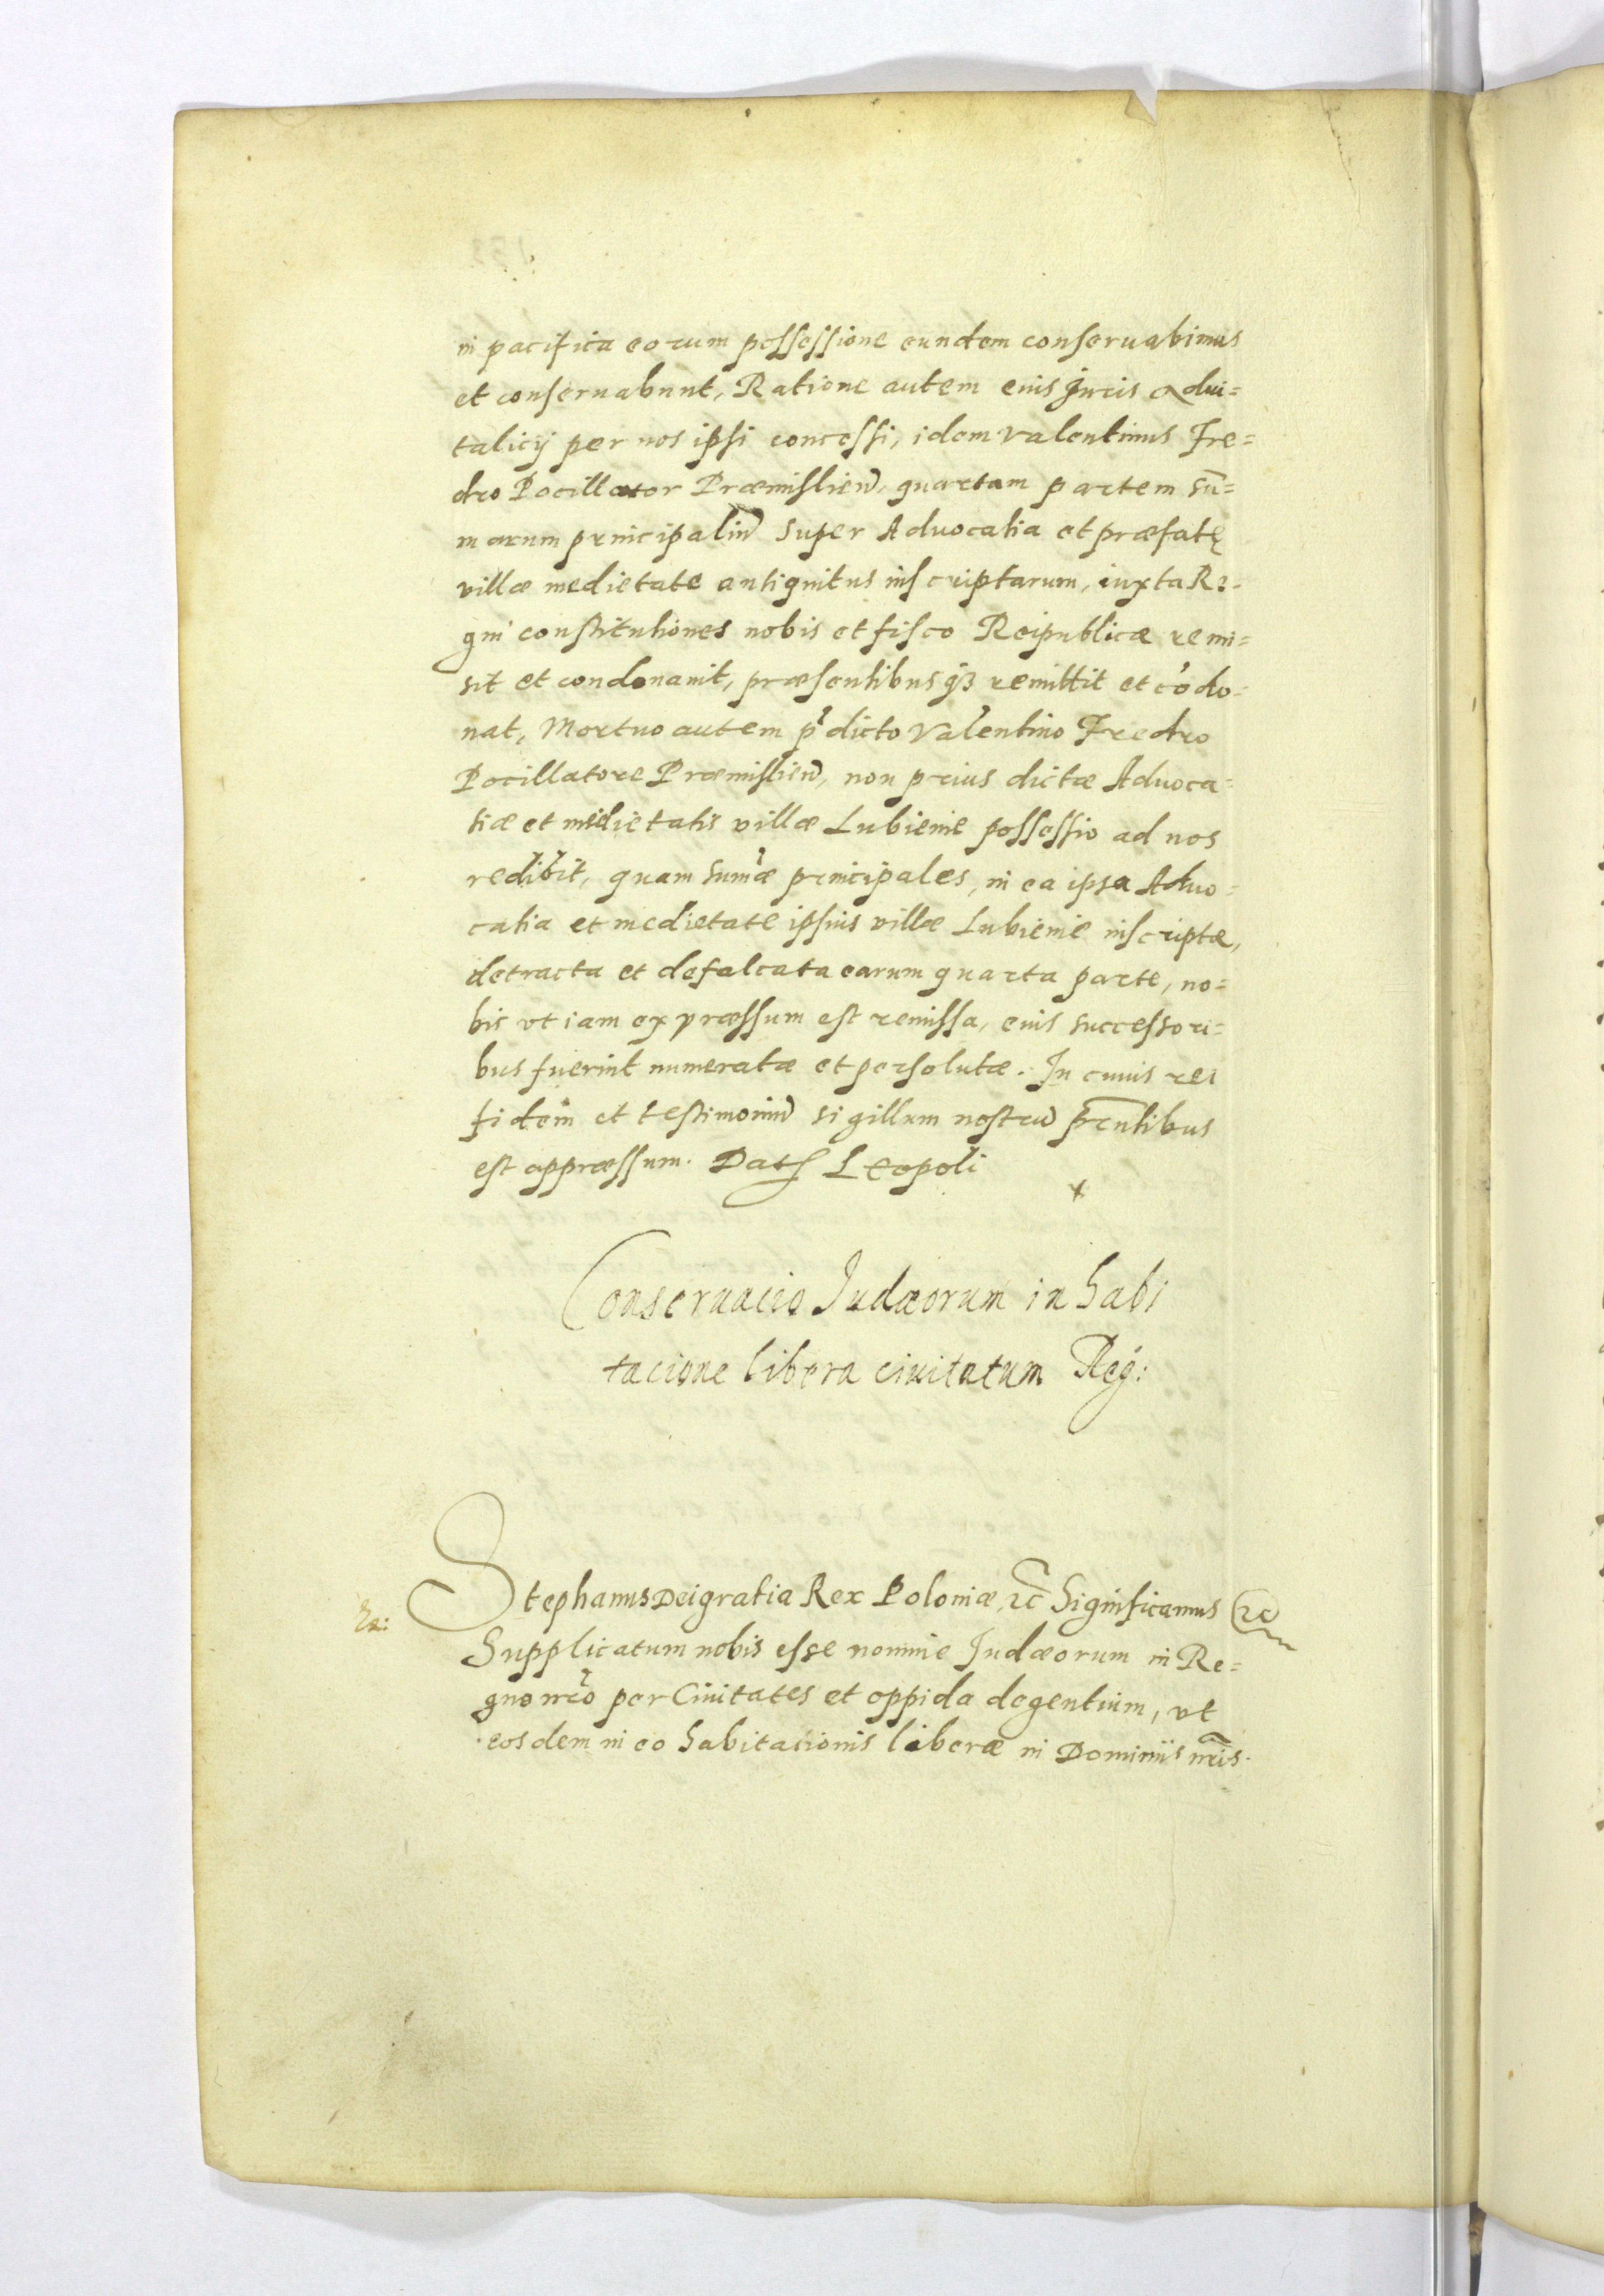 in pacifica eorum possessione eundem conseruabimus
et conseruabunt, Ratione autem eius Juris advi=
talicij per nos ipsi concessi, idem Valentinus Fre=
dro Pocillator Præmislien̄, quartam partem sū=
marum principaliū super Advocatia et præfatę
villæ medietate antiquitus inscriptarum, iuxta Re=
gni constitutiones nobis et fisco Reipublicæ remi=
sit et condonauit, præsentibusqȝ remittit et cōdo=
nat, Mortuo autem p̄dicto Valentino Fredro
Pocillatore Præmislien̄, non prius dictæ Advoca=
tiæ et medietatis villæ Lubienie possessio ad nos
redibit, quam sum̄æ principales, in ea ipsa Advo=
catia et medietate ipsius villæ Lubienie inscriptæ,
detracta et defalcata earum quarta parte, no=
bis vt iam expræssum est remissa, eius successori=
bus fuerint numeratæ et persolutæ. In cuius rei
fidem et testimoniū sigillum nostrū pr̄ntibus
est appræssum. Dat Leopoli
Conseruacio Judæorum in habi
tacione libera ciuitatum Reg:
Stephanus Dei gratia Rex Poloniæ, ꝛc̄ Significamus ꝛc
Supplicatum nobis esse nomine Judæorum in Re=
gno nr̄o per Ciuitates et oppida degentium, vt
eosdem in eo habitationis liberæ in Dominiis nr̄is.